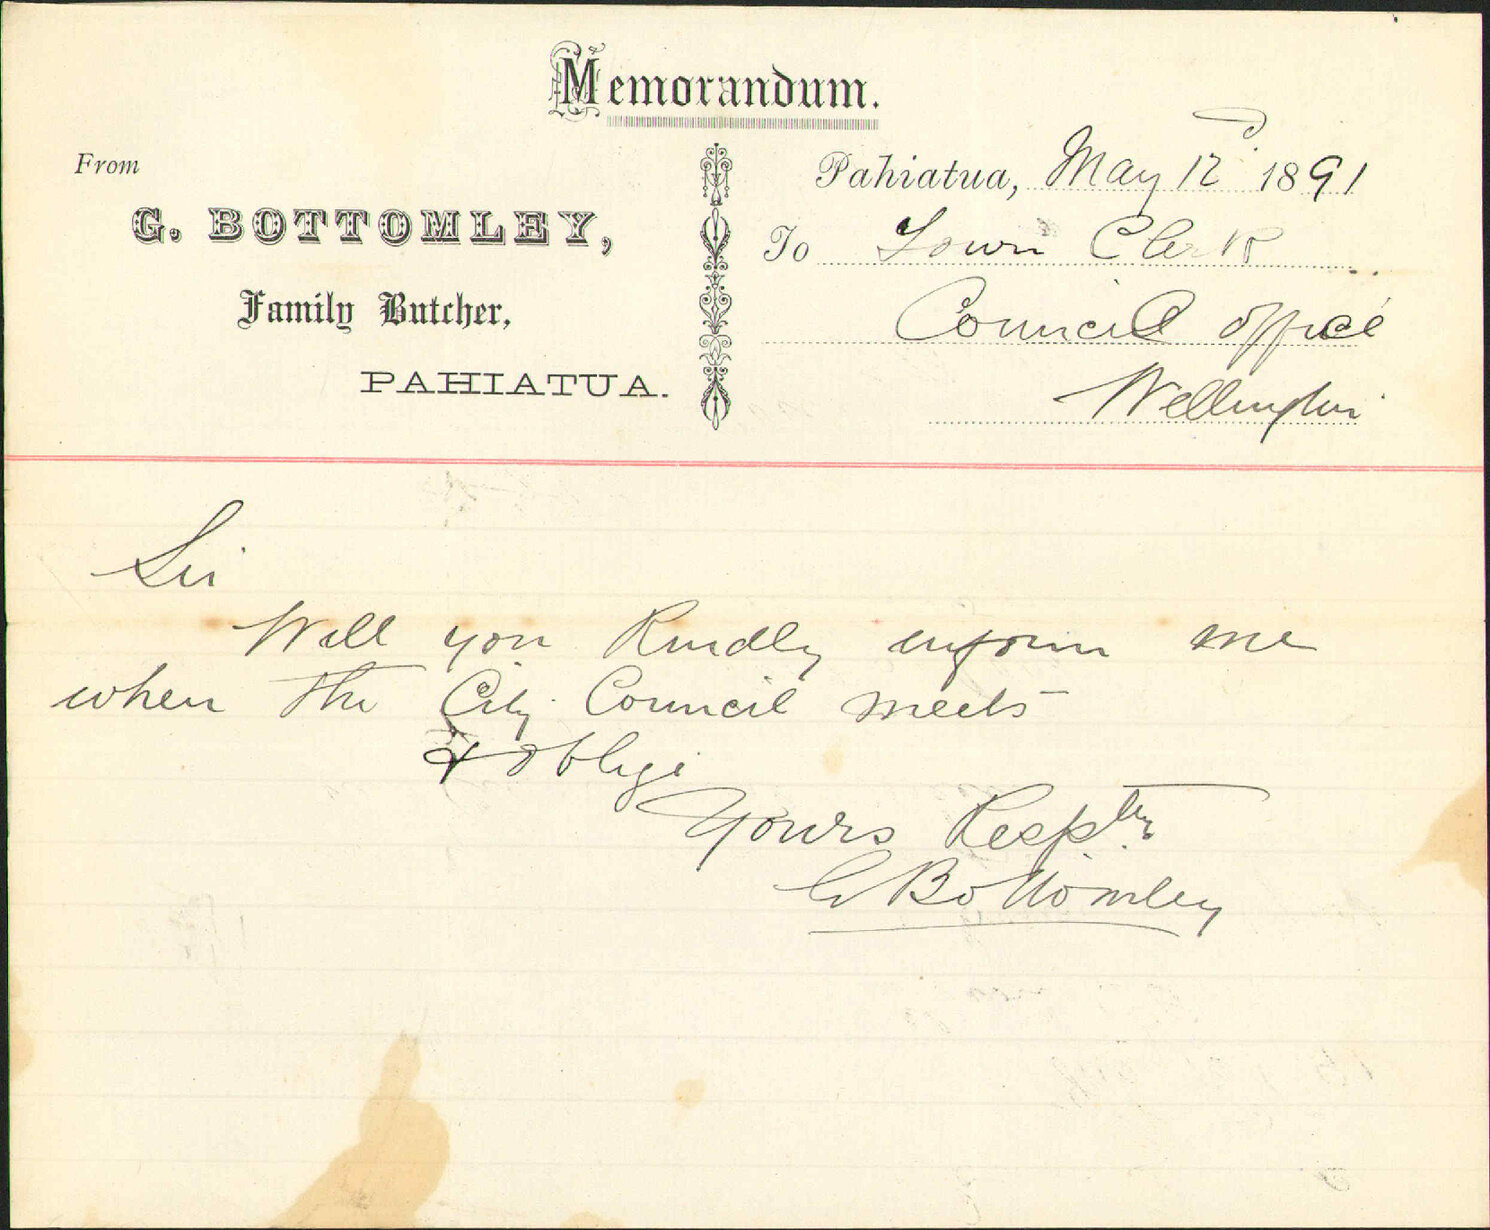 Memorandum.
From
G. BOTTOMLEY,
Family Butcher,
PAHIATUA.
Pahiatua, May 12 1891
To Town Clerk
Council office
Wellington
Sir
Will you Kindly inform me
when the City Council meets
& oblige
Yours Resptly
G Bottomley